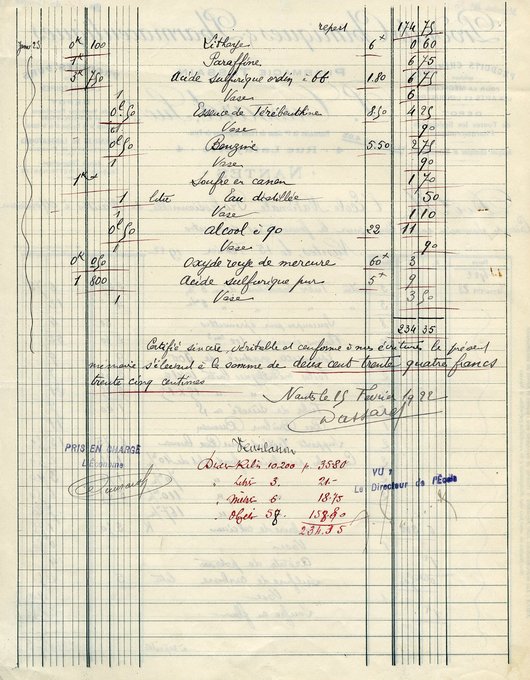 report 174 75
Janv 25 0k 100 Litharge 6 x 0 60
1k Paraffine 6 75
3k 750 Acide sulfurique ordin. à 66 1.80 6 75
1 Vase 6
0l 50 Essence de Térébenthine 8.50 4 25
1 Vase 90
0l 50 Benzine 5.50 2 75
1 Vase 90
1k Soufre en canon 1 70
1 litre Eau distillée 50
1 Vase 1 10
0l 50 alcool à 90 22 11
1 Vase 90
0k 050 Oxyde rouge de mercure 60 x 3
1 800 Acide sulfurique pur 5 x 9
1 Vase 3 50
234 35
Certifié sincère, véritable et conforme à mes écritures le présent
mémoire s'élevant à la somme de deux cent trente quatre francs
trente cinq centimes
Nantes le 25 Février 1922
Ventilation
PRIS EN CHARGE
L'Économe
Kilos 10.200 p. 35.80
" Litres 3. 21.-
" Mètres 6 18.75
" Objets 58 158.80
234.35
VU :
Le Directeur de l'École